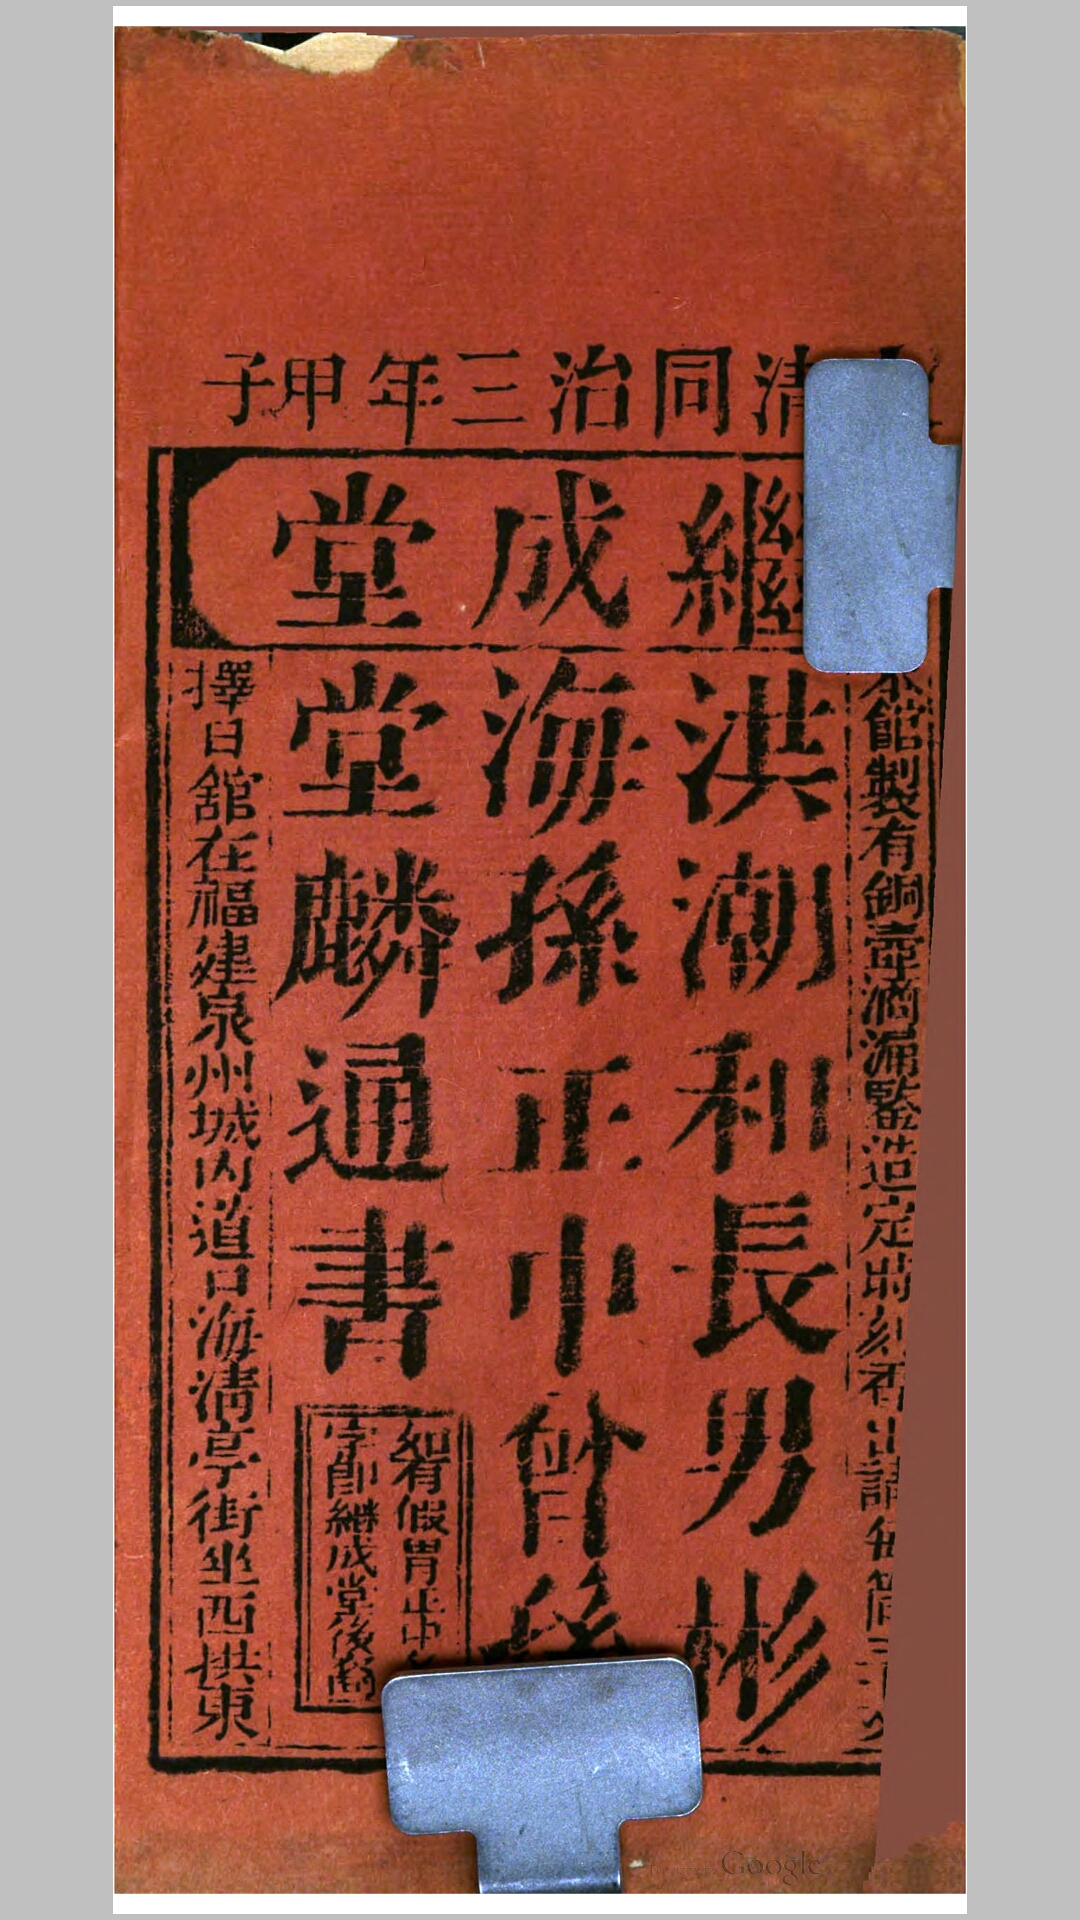 清同治三年甲子
繼成堂
本館製有銅壺滴漏監造定時刻香出請每筒
洪潮和長男彬
海孫正中曾孫
堂堂麟通書
如有假冒止中
字即繼成堂後裔
擇日舘在福建泉州城內道口海清亭街坐西拱東
Google